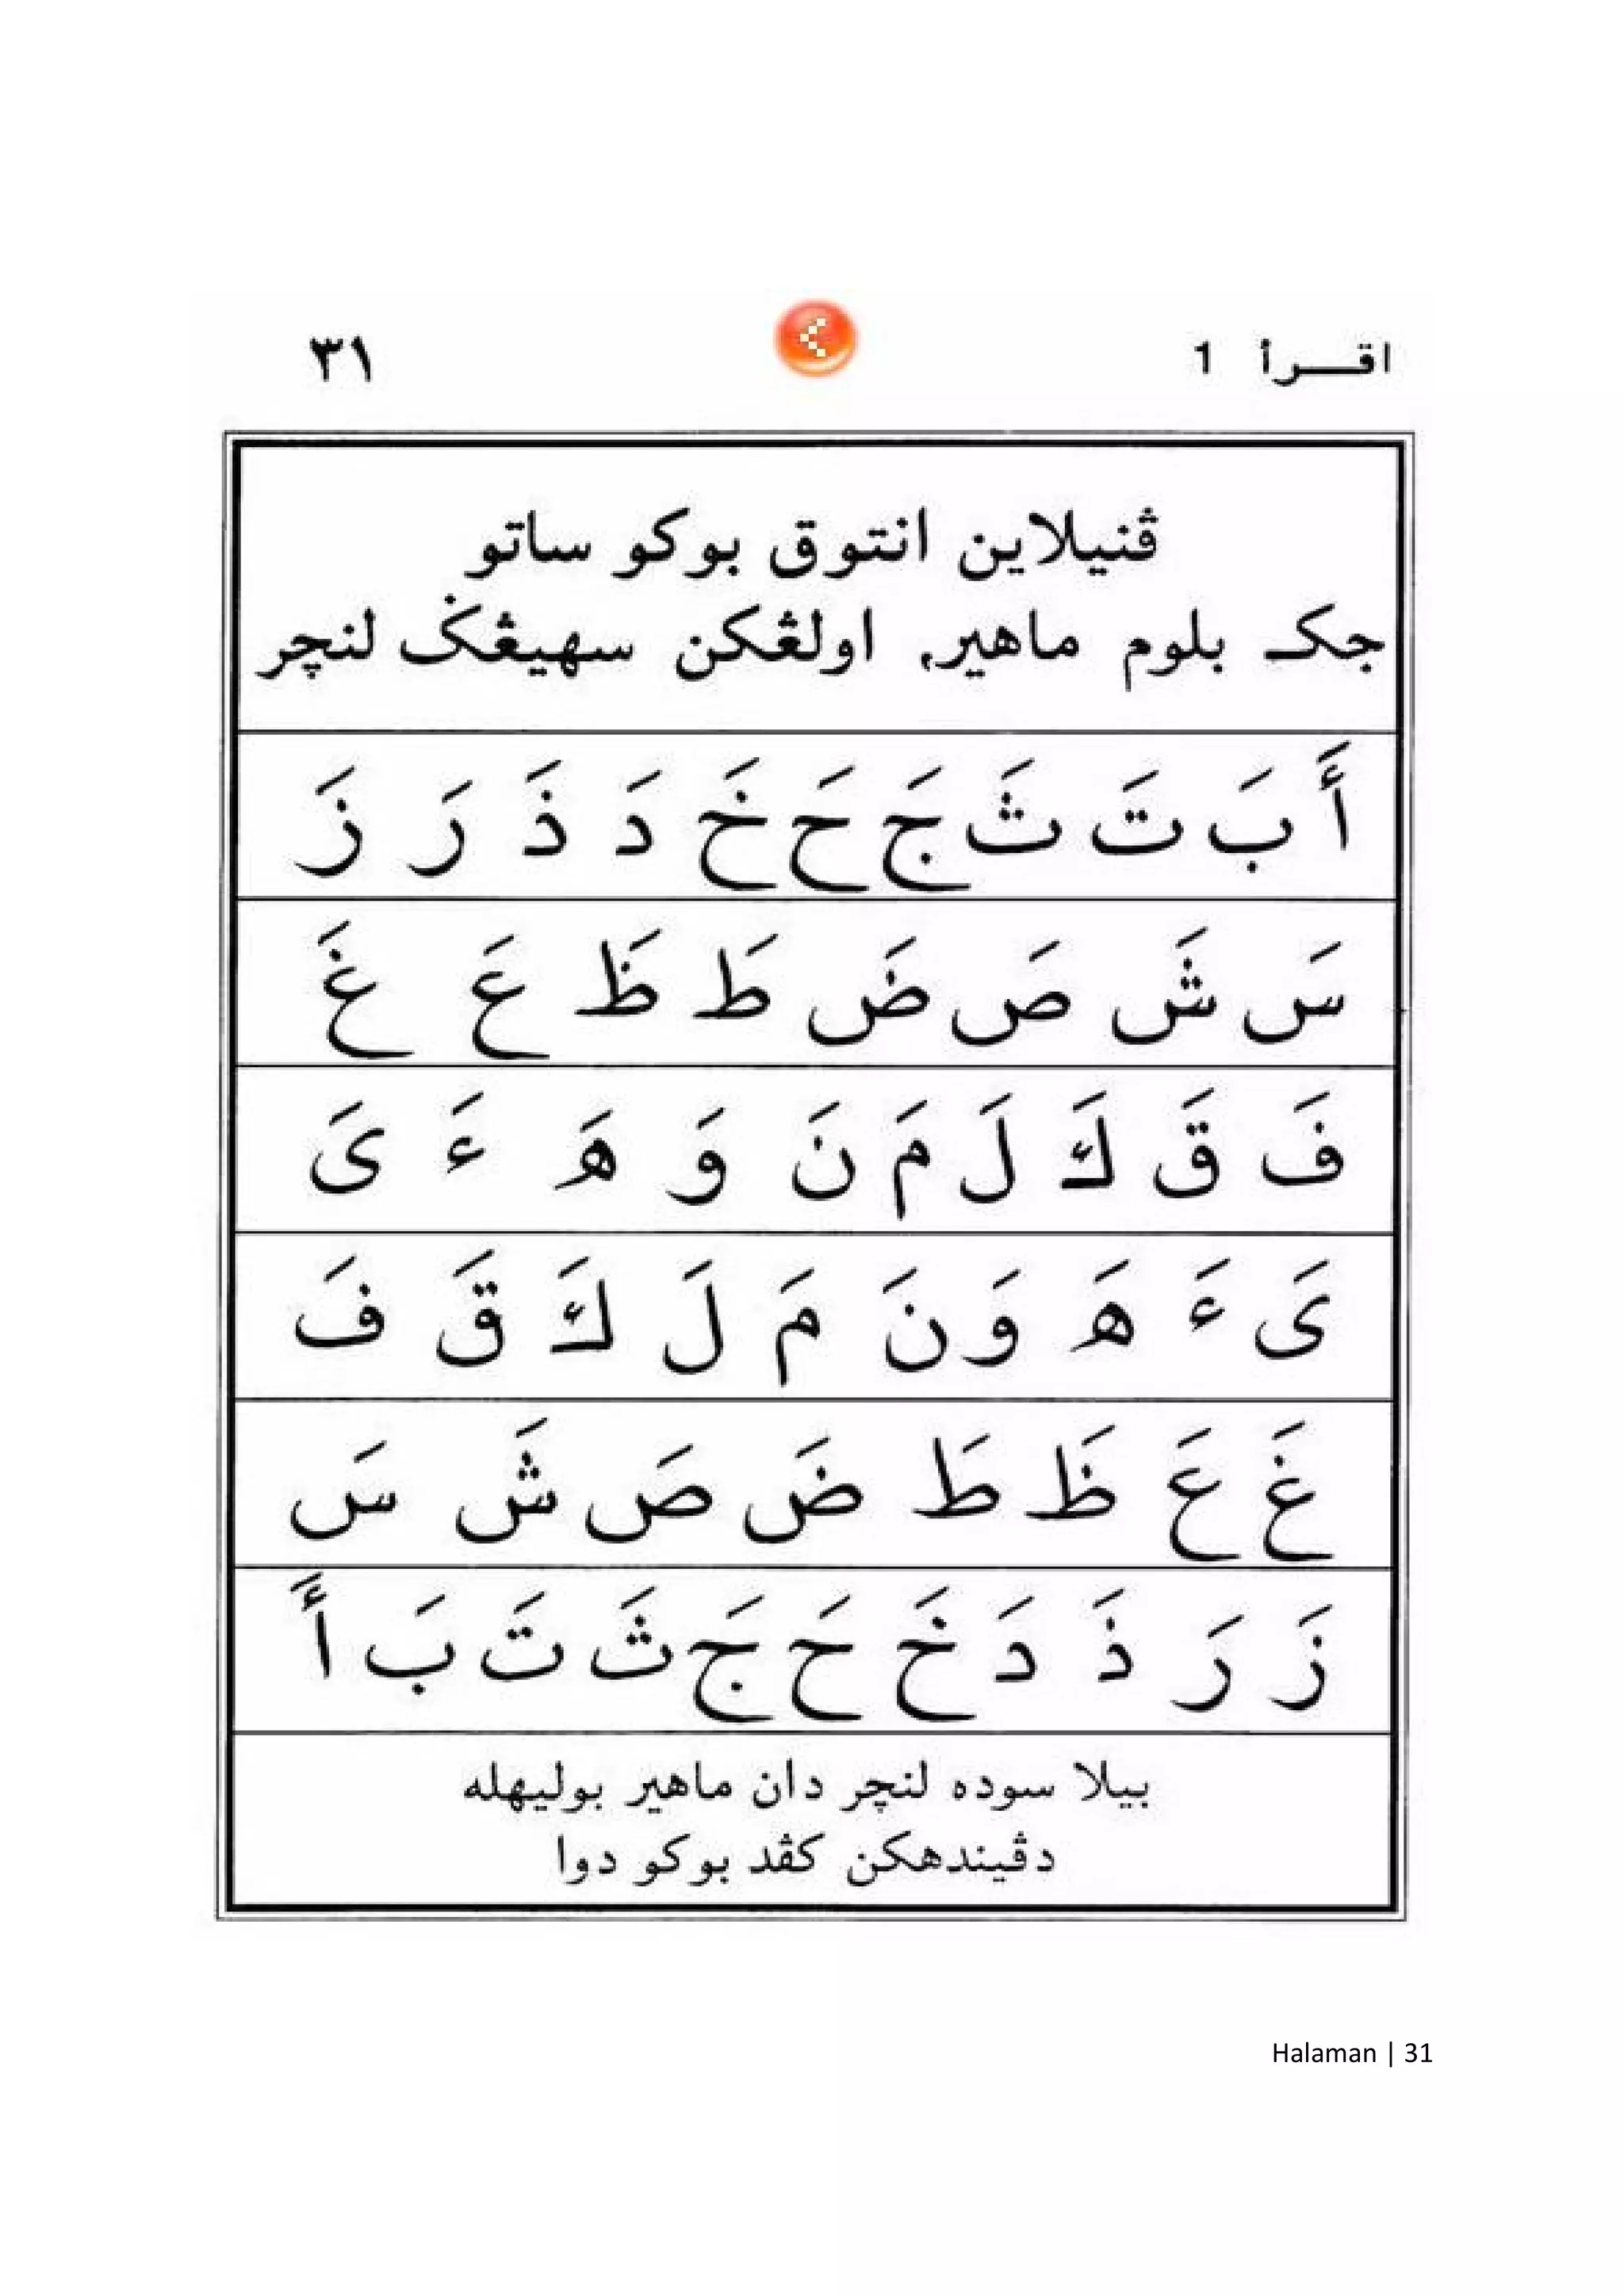 اقـــرأ 1 ٣١
ڤنيلاين انتوق بوكو ساتو
جكـ بلوم ماهير, اولڠكن سهيڠݢ لنچر
أَ بَ تَ ثَ جَ حَ خَ دَ ذَ رَ زَ
سَ شَ صَ ضَ طَ ظَ عَ غَ
فَ قَ كَ لَ مَ نَ وَ هَ ءَ ىَ
ىَ ءَ هَ وَ نَ مَ لَ كَ قَ فَ
غَ عَ ظَ طَ ضَ صَ شَ سَ
زَ رَ ذَ دَ خَ حَ جَ ثَ تَ بَ أَ
بيلا سوده لنچر دان ماهير بوليهله
دڤيندهكن كڤد بوكو دوا
Halaman | 31